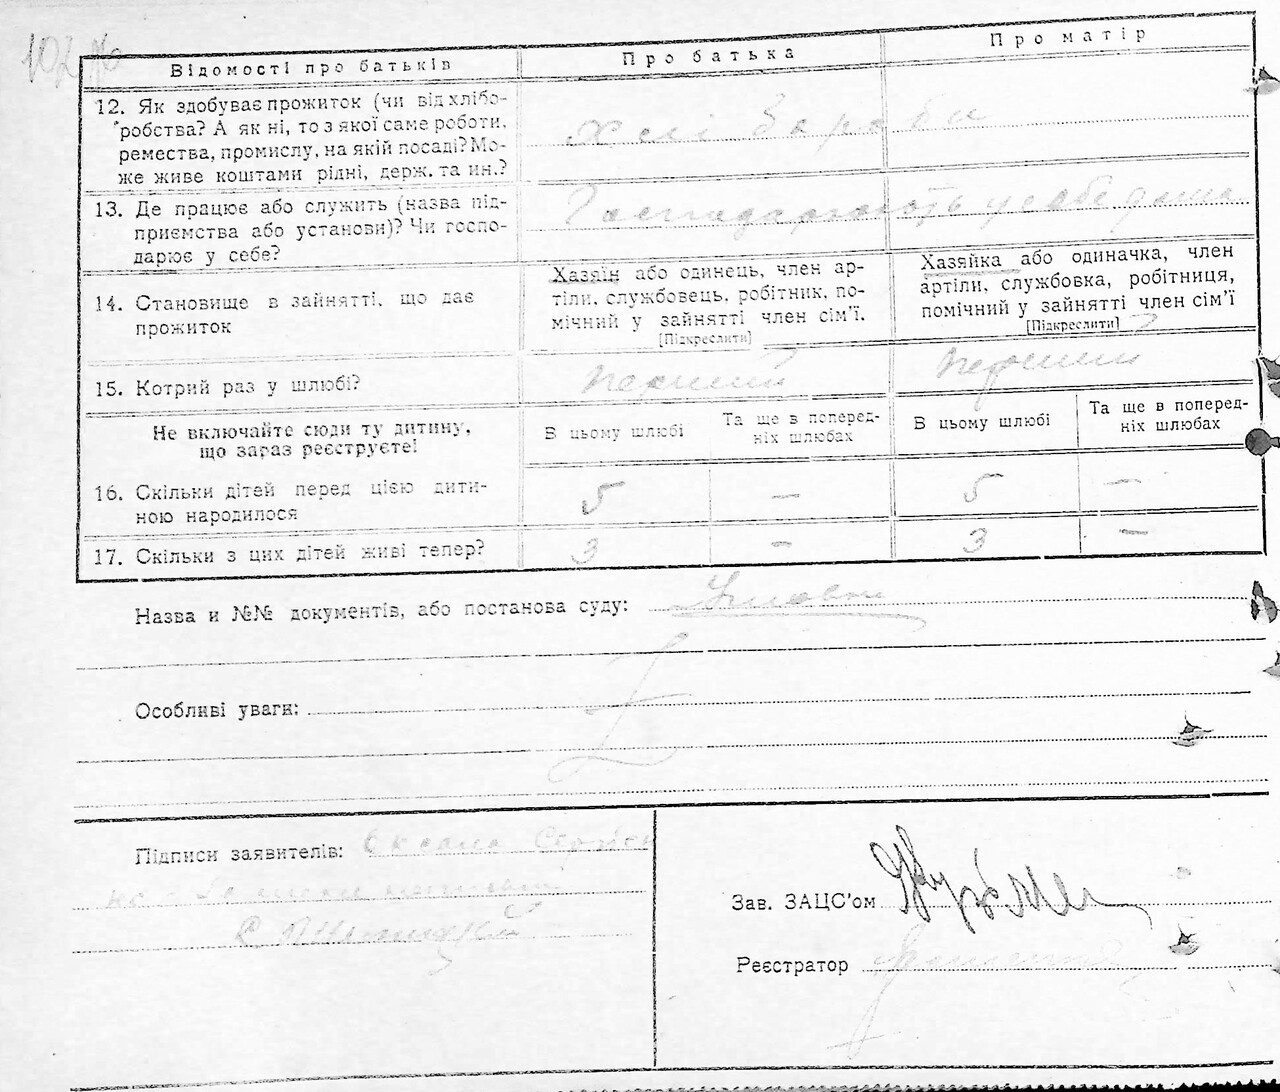 102 Зв
Відомості про батьків
Про батька
Про матір
12. Як здобуває прожиток (чи від хлібо-
робства? А як ні, то з якої саме роботи,
ремества, промислу, на якій посаді? Мо-
же живе коштами рідні, держ. та ин.?
хлі бороби
13. Де працює або служить (назва під-
приємства або установи)? Чи госпо-
дарює у себе?
Господарюють у себе дома
14. Становище в зайнятті, що дає
прожиток
Хазяїн або одинець, член ар-
тіли, службовець, робітник, по-
мічний у зайнятті член сім'ї.
[Підкреслити]
Хазяйка або одиначка, член
артіли, службовка, робітниця,
помічний у зайнятті член сім'ї
[Підкреслити]
15. Котрий раз у шлюбі?
перший
перший
Не включайте сюди ту дитину,
що зараз реєструєте!
В цьому шлюбі
Та ще в поперед-
ніх шлюбах
В цьому шлюбі
Та ще в поперед-
ніх шлюбах
16. Скільки дітей перед цією дити-
ною народилося
5 – 5 –
17. Скільки з цих дітей живі тепер?
3 – 3 –
Назва и №№ документів, або постанова суду:
Особливі уваги:
Підписи заявителів: Оксана
Зав. ЗАЦС'ом
Реєстратор